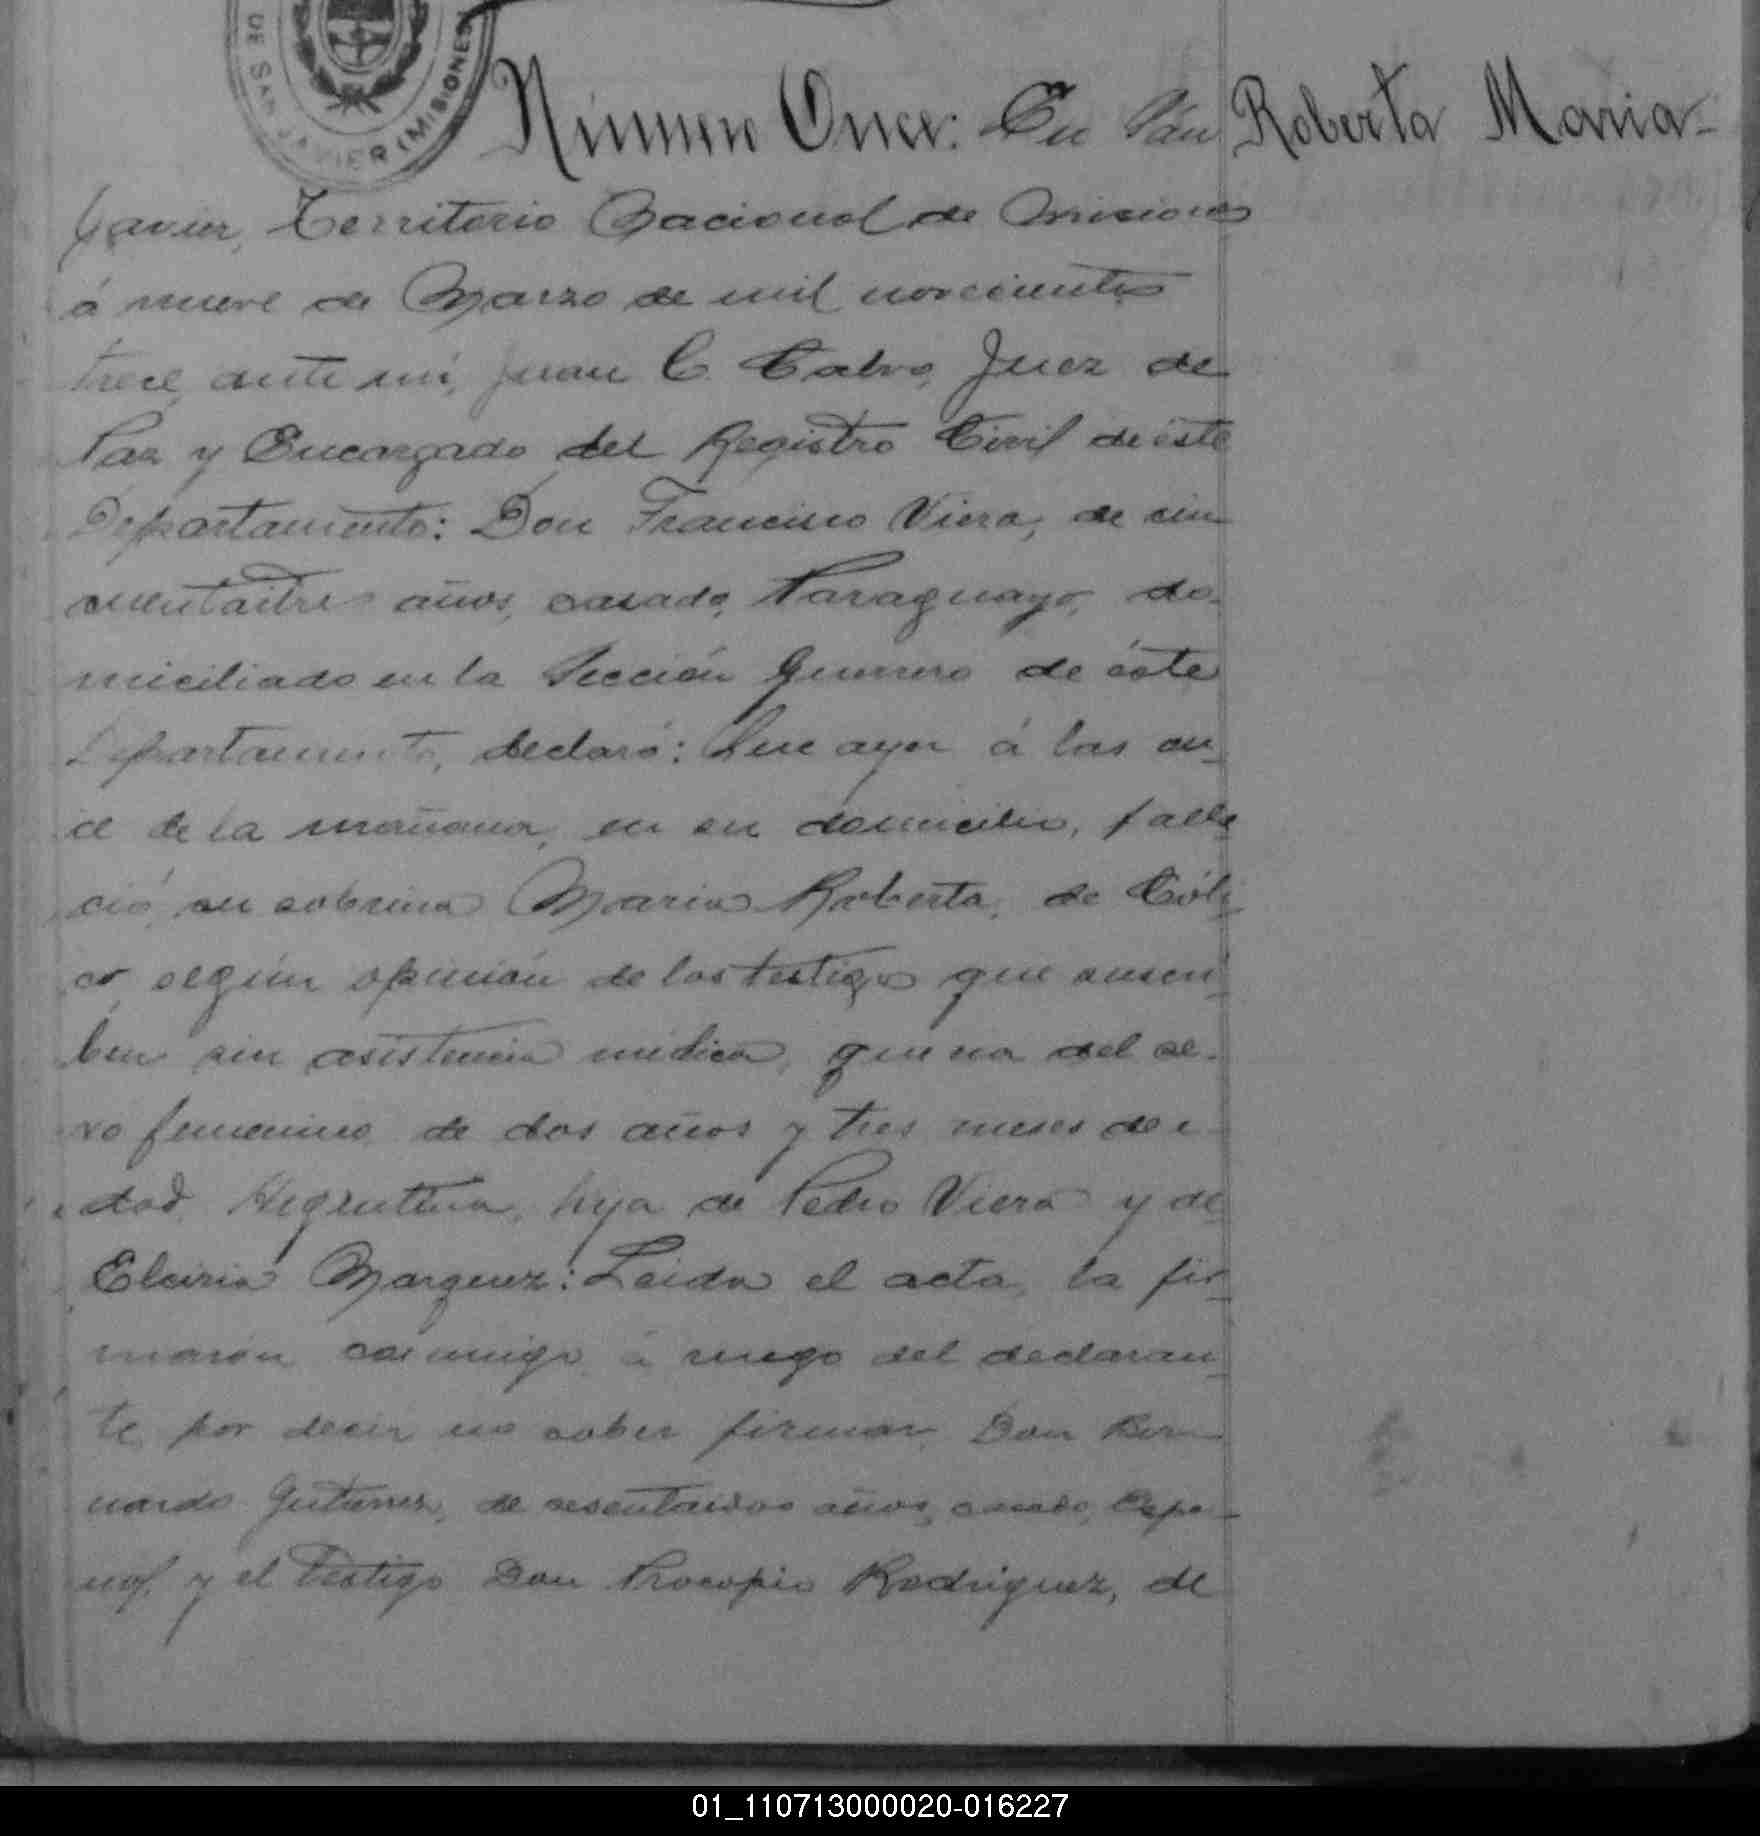 DE SAN JAVIER (MISIONES)
Número Once: En San
Roberta Maria-
Javier, Territorio Nacional de Misiones
á nueve de Marzo de mil novecientos
trece, ante mí, Juan C. Calvo, Juez de
Paz y Encargado del Registro Civil de éste
Departamento: Don Francisco Viera, de cin
cuentaitres años, casado, Paraguayo, do-
miciliado en la Sección Guerrero de éste
Departamento, declaró: Que ayer á las on-
ce de la mañana, en su domicilio, falle
ció, su sobrina Maria Roberta, de Cóli-
co según opinión de los testigos que suscri-
ben sin asistencia médica, que era del se-
xo femenino de dos años y tres meses de e-
dad, Argentina, hija de Pedro Viera y de
Elciria Marquez: Leida el acta, la fir-
maron conmigo á ruego del declaran-
te por decir no saber firmar, Don Ber-
nardo Gutierrez, de sesentaidos años, casado, Espa-
ñol, y el testigo Don Procopio Rodriguez, de
01_110713000020-016227